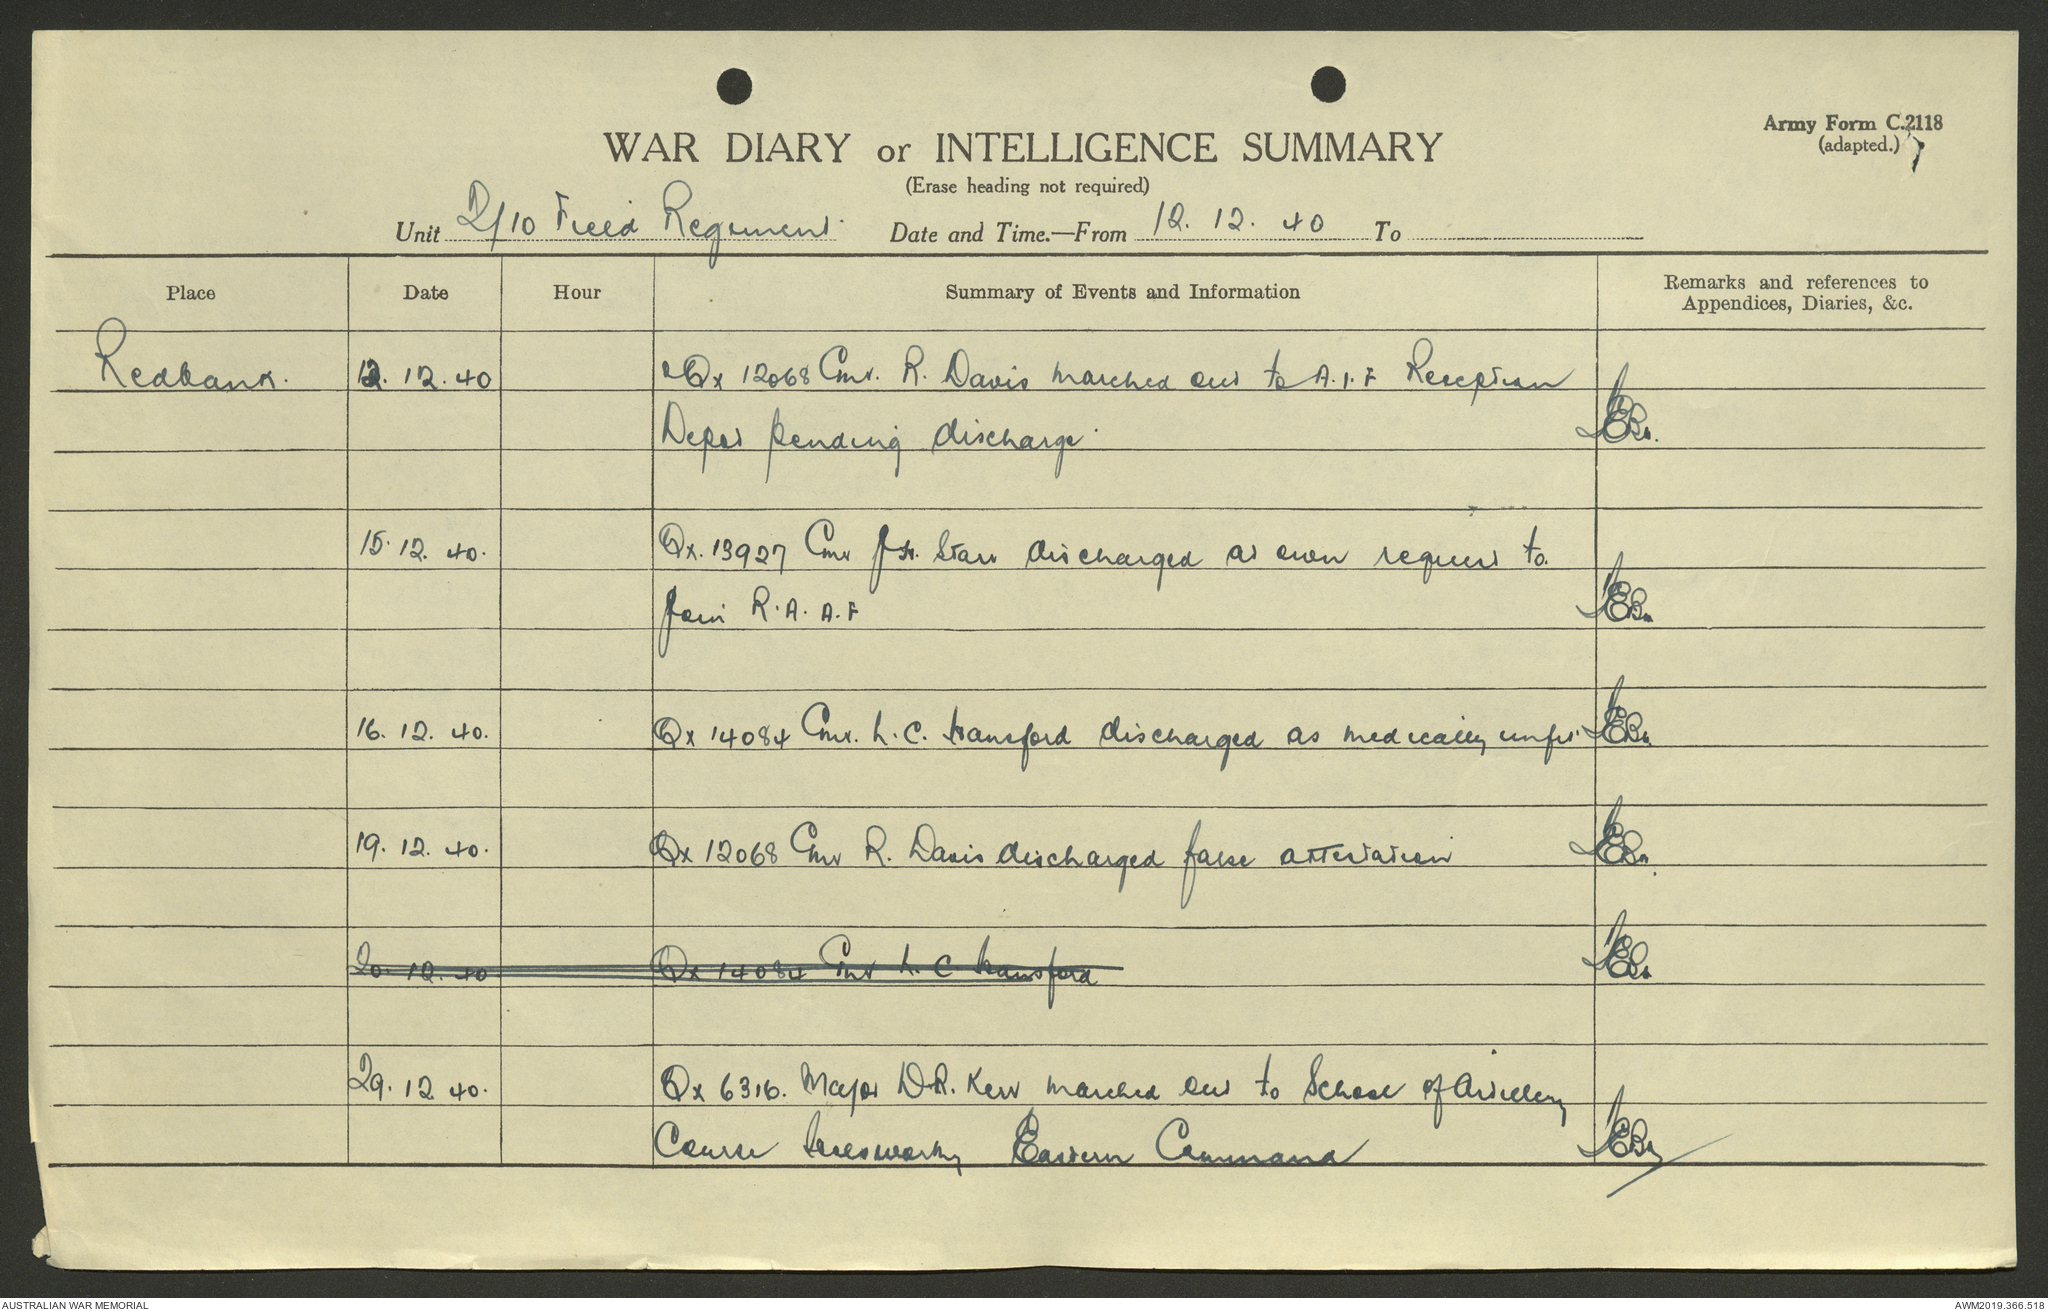 Army Form C.2118
(adapted.) 7
WAR DIARY or INTELLIGENCE SUMMARY
(Erase heading not required)
Unit 2/10 Field Regiment. Date and Time.—From 12. 12. 40 To
Place Date Hour Summary of Events and Information Remarks and references to
Appendices, Diaries, &c.
Redbank. 12. 12. 40 Qx 12068 Gnr. R. Davis marched out to A.I.F Reception
Depot pending discharge.
15. 12. 40. Qx. 13927 Gnr Starr discharged at own request to
join R.A.A.F
16. 12. 40. Qx 14084 Gnr. L. C. Hansford discharged as medically unfit
19. 12. 40. Qx 12068 Gnr R. Davis discharged false attestation
20. 12. 40 Qx 14084 Gnr L. C. Hansford
29. 12 40. Qx 6316. Major D.R. Kerr marched out to School of Artillery
Course Holsworthy Eastern Command
AUSTRALIAN WAR MEMORIAL AWM2019.366.518